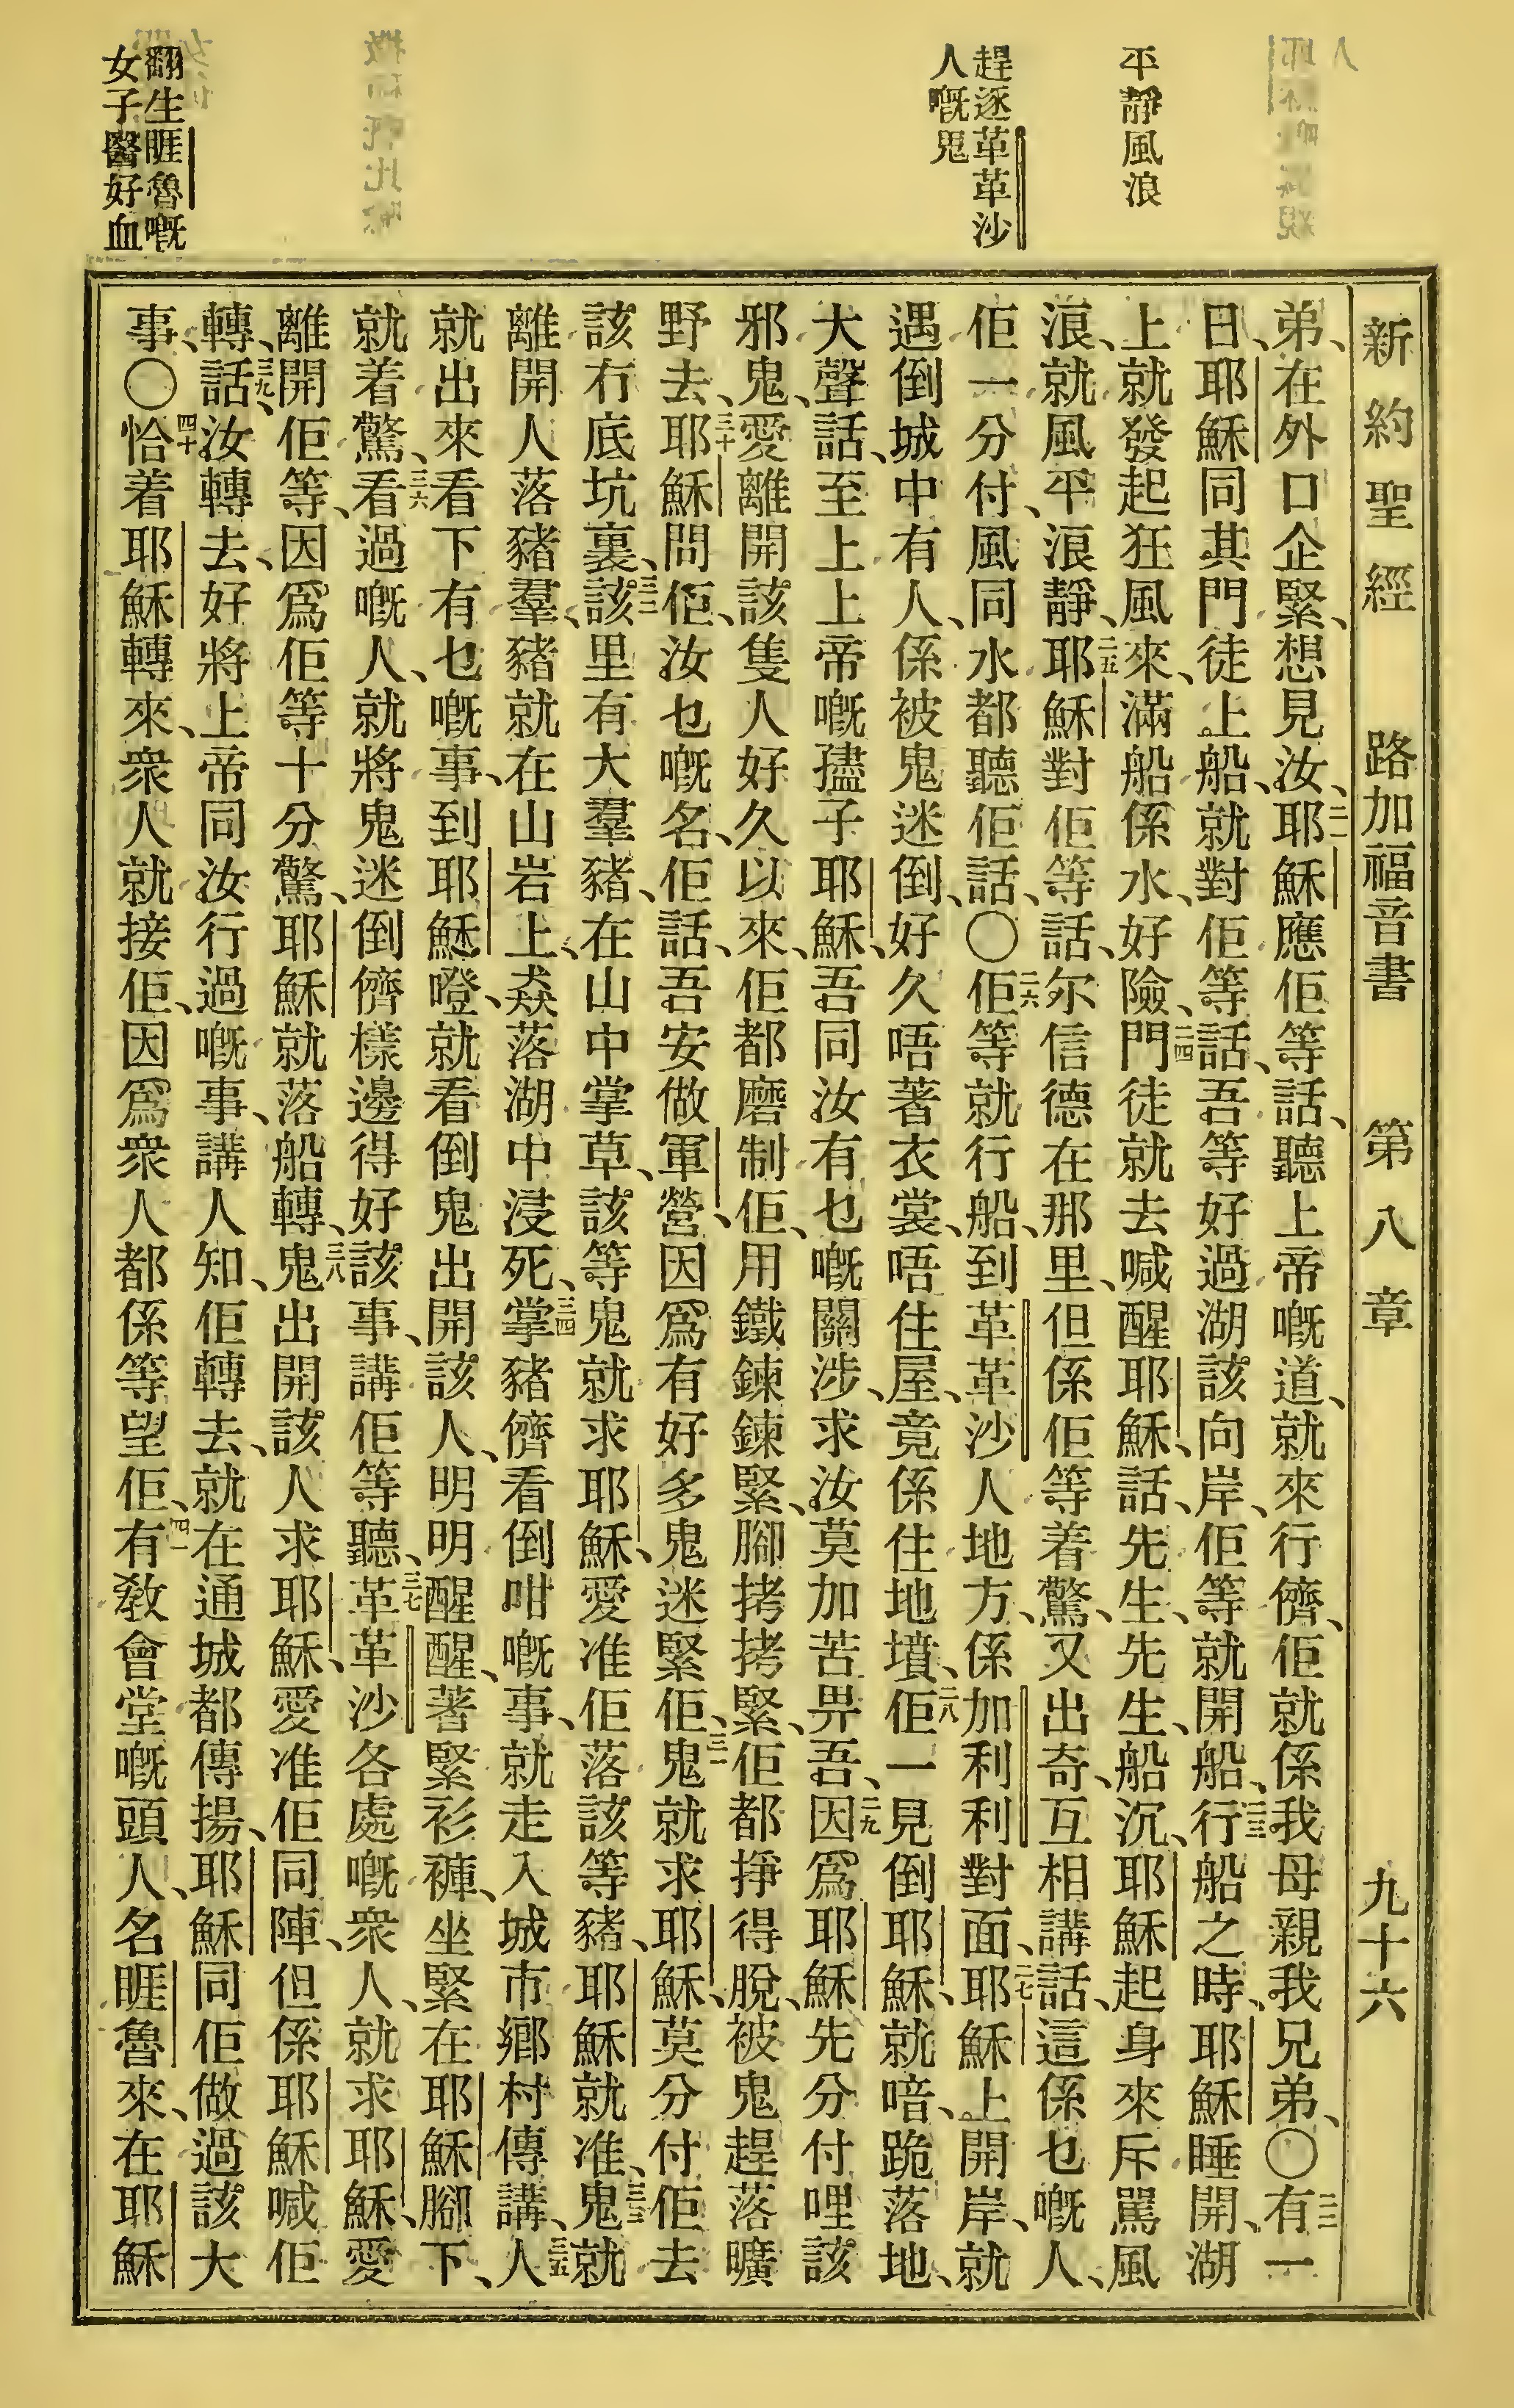 新約聖經　路加福音書　第八章　九十六
平靜風浪
趕逐革革沙
人嘅鬼
翻生睚魯嘅
女子醫好血
弟、在外口企緊、想見汝、二一耶穌應佢等話、聽上帝嘅道、就來行儕、佢就係我母親我兄弟、〇二二有一
日、耶穌同其門徒上船、就對佢等話、吾等好過湖該向岸、佢等就開船、二三行船之時、耶穌睡開、湖
上就發起狂風來、滿船係水、好險、二四門徒就去喊醒耶穌、話、先生、先生、船沉、耶穌起身來斥罵風
浪、就風平浪靜、二五耶穌對佢等話、尔信德在那里、但係佢等着驚、又出奇、互相講話、這係乜嘅人、
佢一分付、風同水都聽佢話、〇二六佢等就行船、到革革沙人地方、係加利利對面、二七耶穌上開岸、就
遇倒城中有人、係被鬼迷倒、好久唔著衣裳、唔住屋、竟係住地墳、二八佢一見倒耶穌、就喑、跪落地、
大聲話、至上上帝嘅孻子耶穌、吾同汝有乜嘅關涉、求汝莫加苦畀吾、二九因爲耶穌先分付哩該
邪鬼、愛離開該隻人好久以來、佢都磨制佢、用鐵鍊鍊緊、腳拷拷緊、佢都掙得脫、被鬼趕落曠
野去、三十耶穌問佢、汝乜嘅名、佢話、吾安做軍營、因爲有好多鬼迷緊佢、三一鬼就求耶穌、莫分付佢去
該冇底坑裏、三二該里有大羣豬、在山中掌草、該等鬼就求耶穌、愛准佢落該等豬、耶穌就准、三三鬼就
離開人落豬羣、豬就在山岩上、猋落湖中浸死、三四掌豬儕看倒咁嘅事、就走入城市鄉村傳講、三五人
就出來看下有乜嘅事、到耶穌嶝、就看倒鬼出開該人、明明醒醒、著緊衫褲、坐緊在耶穌腳下、
就着驚、三六看過嘅人、就將鬼迷倒儕樣邊得好該事、講佢等聽、三七革革沙各處嘅衆人、就求耶穌、愛
離開佢等、因爲佢等十分驚、耶穌就落船轉、三八鬼出開該人求耶穌、愛准佢同陣、但係耶穌喊佢
轉、話、三九汝轉去、好將上帝同汝行過嘅事、講人知、佢轉去、就在通城都傳揚、耶穌同佢做過該大
事、〇四十恰着耶穌轉來、衆人就接佢、因爲衆人都係等望佢、四一有敎會堂嘅頭人、名睚魯來、在耶穌